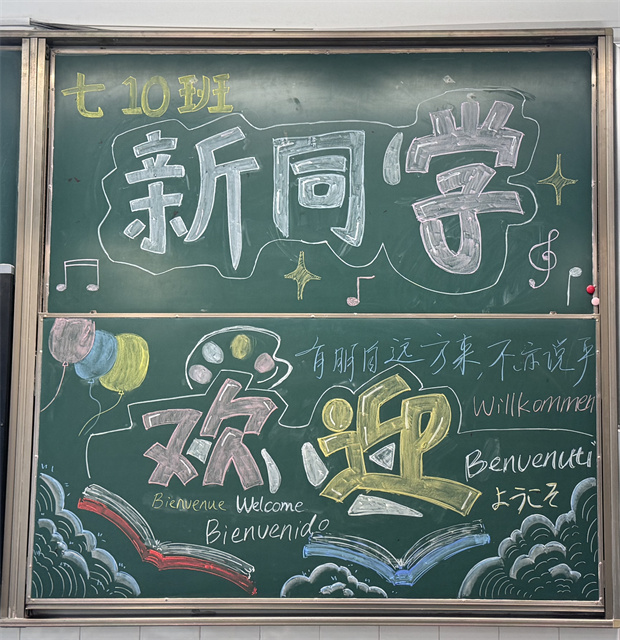 七10班
新同学
有朋自远方来,不亦说乎
欢迎
Willkommen
Benvenuti
Bienvenue Welcome
ようこそ
Bienvenido